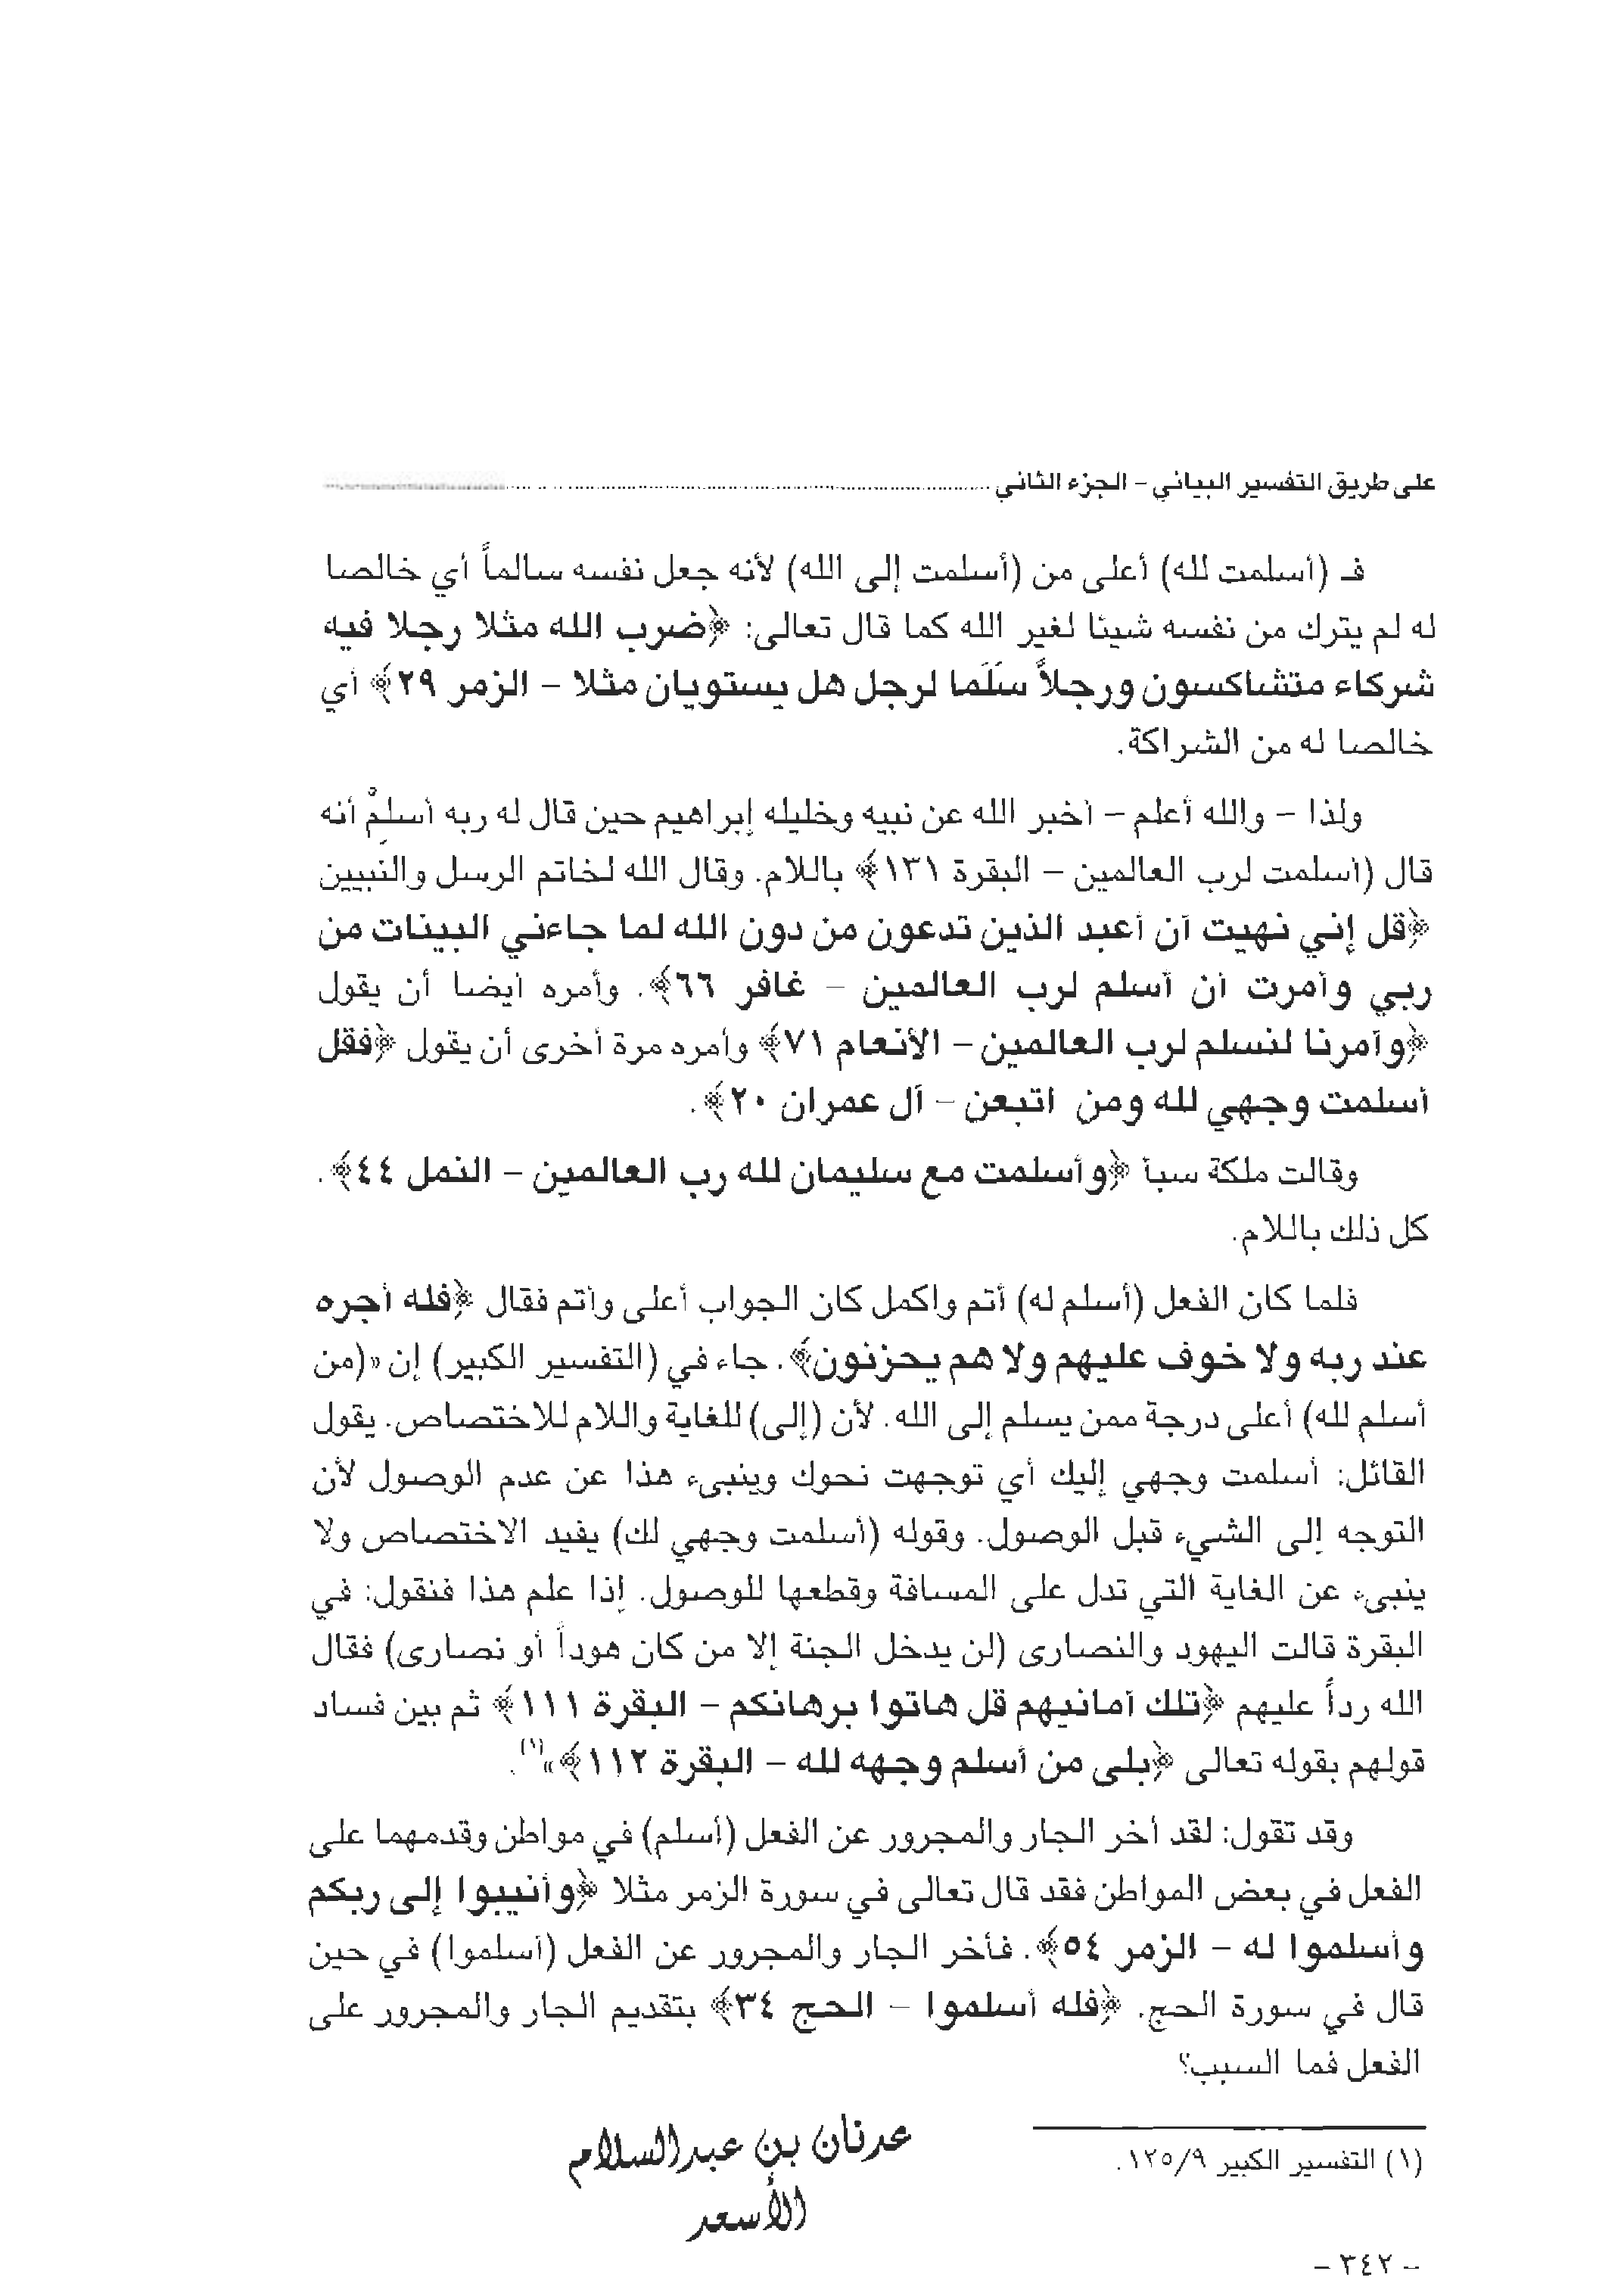 على طريق التفسير البياني – الجزء الثاني
فـ (أسلمت لله) أعلى من (أسلمت إلى الله) لأنه جعل نفسه سالماً أي خالصا
له لم يترك من نفسه شيئا لغير الله كما قال تعالى: ﴿ضرب الله مثلا رجلا فيه
شركاء متشاكسون ورجلاً سَلَما لرجل هل يستويان مثلا – الزمر ٢٩﴾ أي
خالصا له من الشراكة.
ولذا – والله أعلم – أخبر الله عن نبيه وخليله إبراهيم حين قال له ربه أسلِمْ أنه
قال (أسلمت لرب العالمين – البقرة ١٣١﴾ باللام. وقال الله لخاتم الرسل والنبيين
﴿قل إني نهيت أن أعبد الذين تدعون من دون الله لما جاءني البينات من
ربي وأمرت أن أسلم لرب العالمين – غافر ٦٦﴾. وأمره أيضا أن يقول
﴿وأمرنا لنسلم لرب العالمين – الأنعام ٧١﴾ وأمره مرة أخرى أن يقول ﴿فقل
أسلمت وجهي لله ومن اتبعن – آل عمران ٢٠﴾.
وقالت ملكة سبأ ﴿وأسلمت مع سليمان لله رب العالمين – النمل ٤٤﴾.
كل ذلك باللام.
فلما كان الفعل (أسلم له) أتم وأكمل كان الجواب أعلى وأتم فقال ﴿فله أجره
عند ربه ولا خوف عليهم ولا هم يحزنون﴾. جاء في (التفسير الكبير) إن «(من
أسلم لله) أعلى درجة ممن يسلم إلى الله. لأن (إلى) للغاية واللام للاختصاص. يقول
القائل: أسلمت وجهي إليك أي توجهت نحوك وينبىء هذا عن عدم الوصول لأن
التوجه إلى الشيء قبل الوصول. وقوله (أسلمت وجهي لك) يفيد الاختصاص ولا
ينبىء عن الغاية التي تدل على المسافة وقطعها للوصول. إذا علم هذا فنقول: في
البقرة قالت اليهود والنصارى (لن يدخل الجنة إلا من كان هوداً أو نصارى) فقال
الله رداً عليهم ﴿تلك أمانيهم قل هاتوا برهانكم – البقرة ١١١﴾ ثم بين فساد
قولهم بقوله تعالى ﴿بلى من أسلم وجهه لله – البقرة ١١٢﴾»(١).
وقد تقول: لقد أخر الجار والمجرور عن الفعل (أسلم) في مواطن وقدمهما على
الفعل في بعض المواطن فقد قال تعالى في سورة الزمر مثلا ﴿وأنيبوا إلى ربكم
وأسلموا له – الزمر ٥٤﴾. فأخر الجار والمجرور عن الفعل (أسلموا) في حين
قال في سورة الحج. ﴿فله أسلموا – الحج ٣٤﴾ بتقديم الجار والمجرور على
الفعل فما السبب؟
(١) التفسير الكبير ١٢٥/٩.
عدنان بن عبدالسلام
الأسعد
– ٣٤٢ –